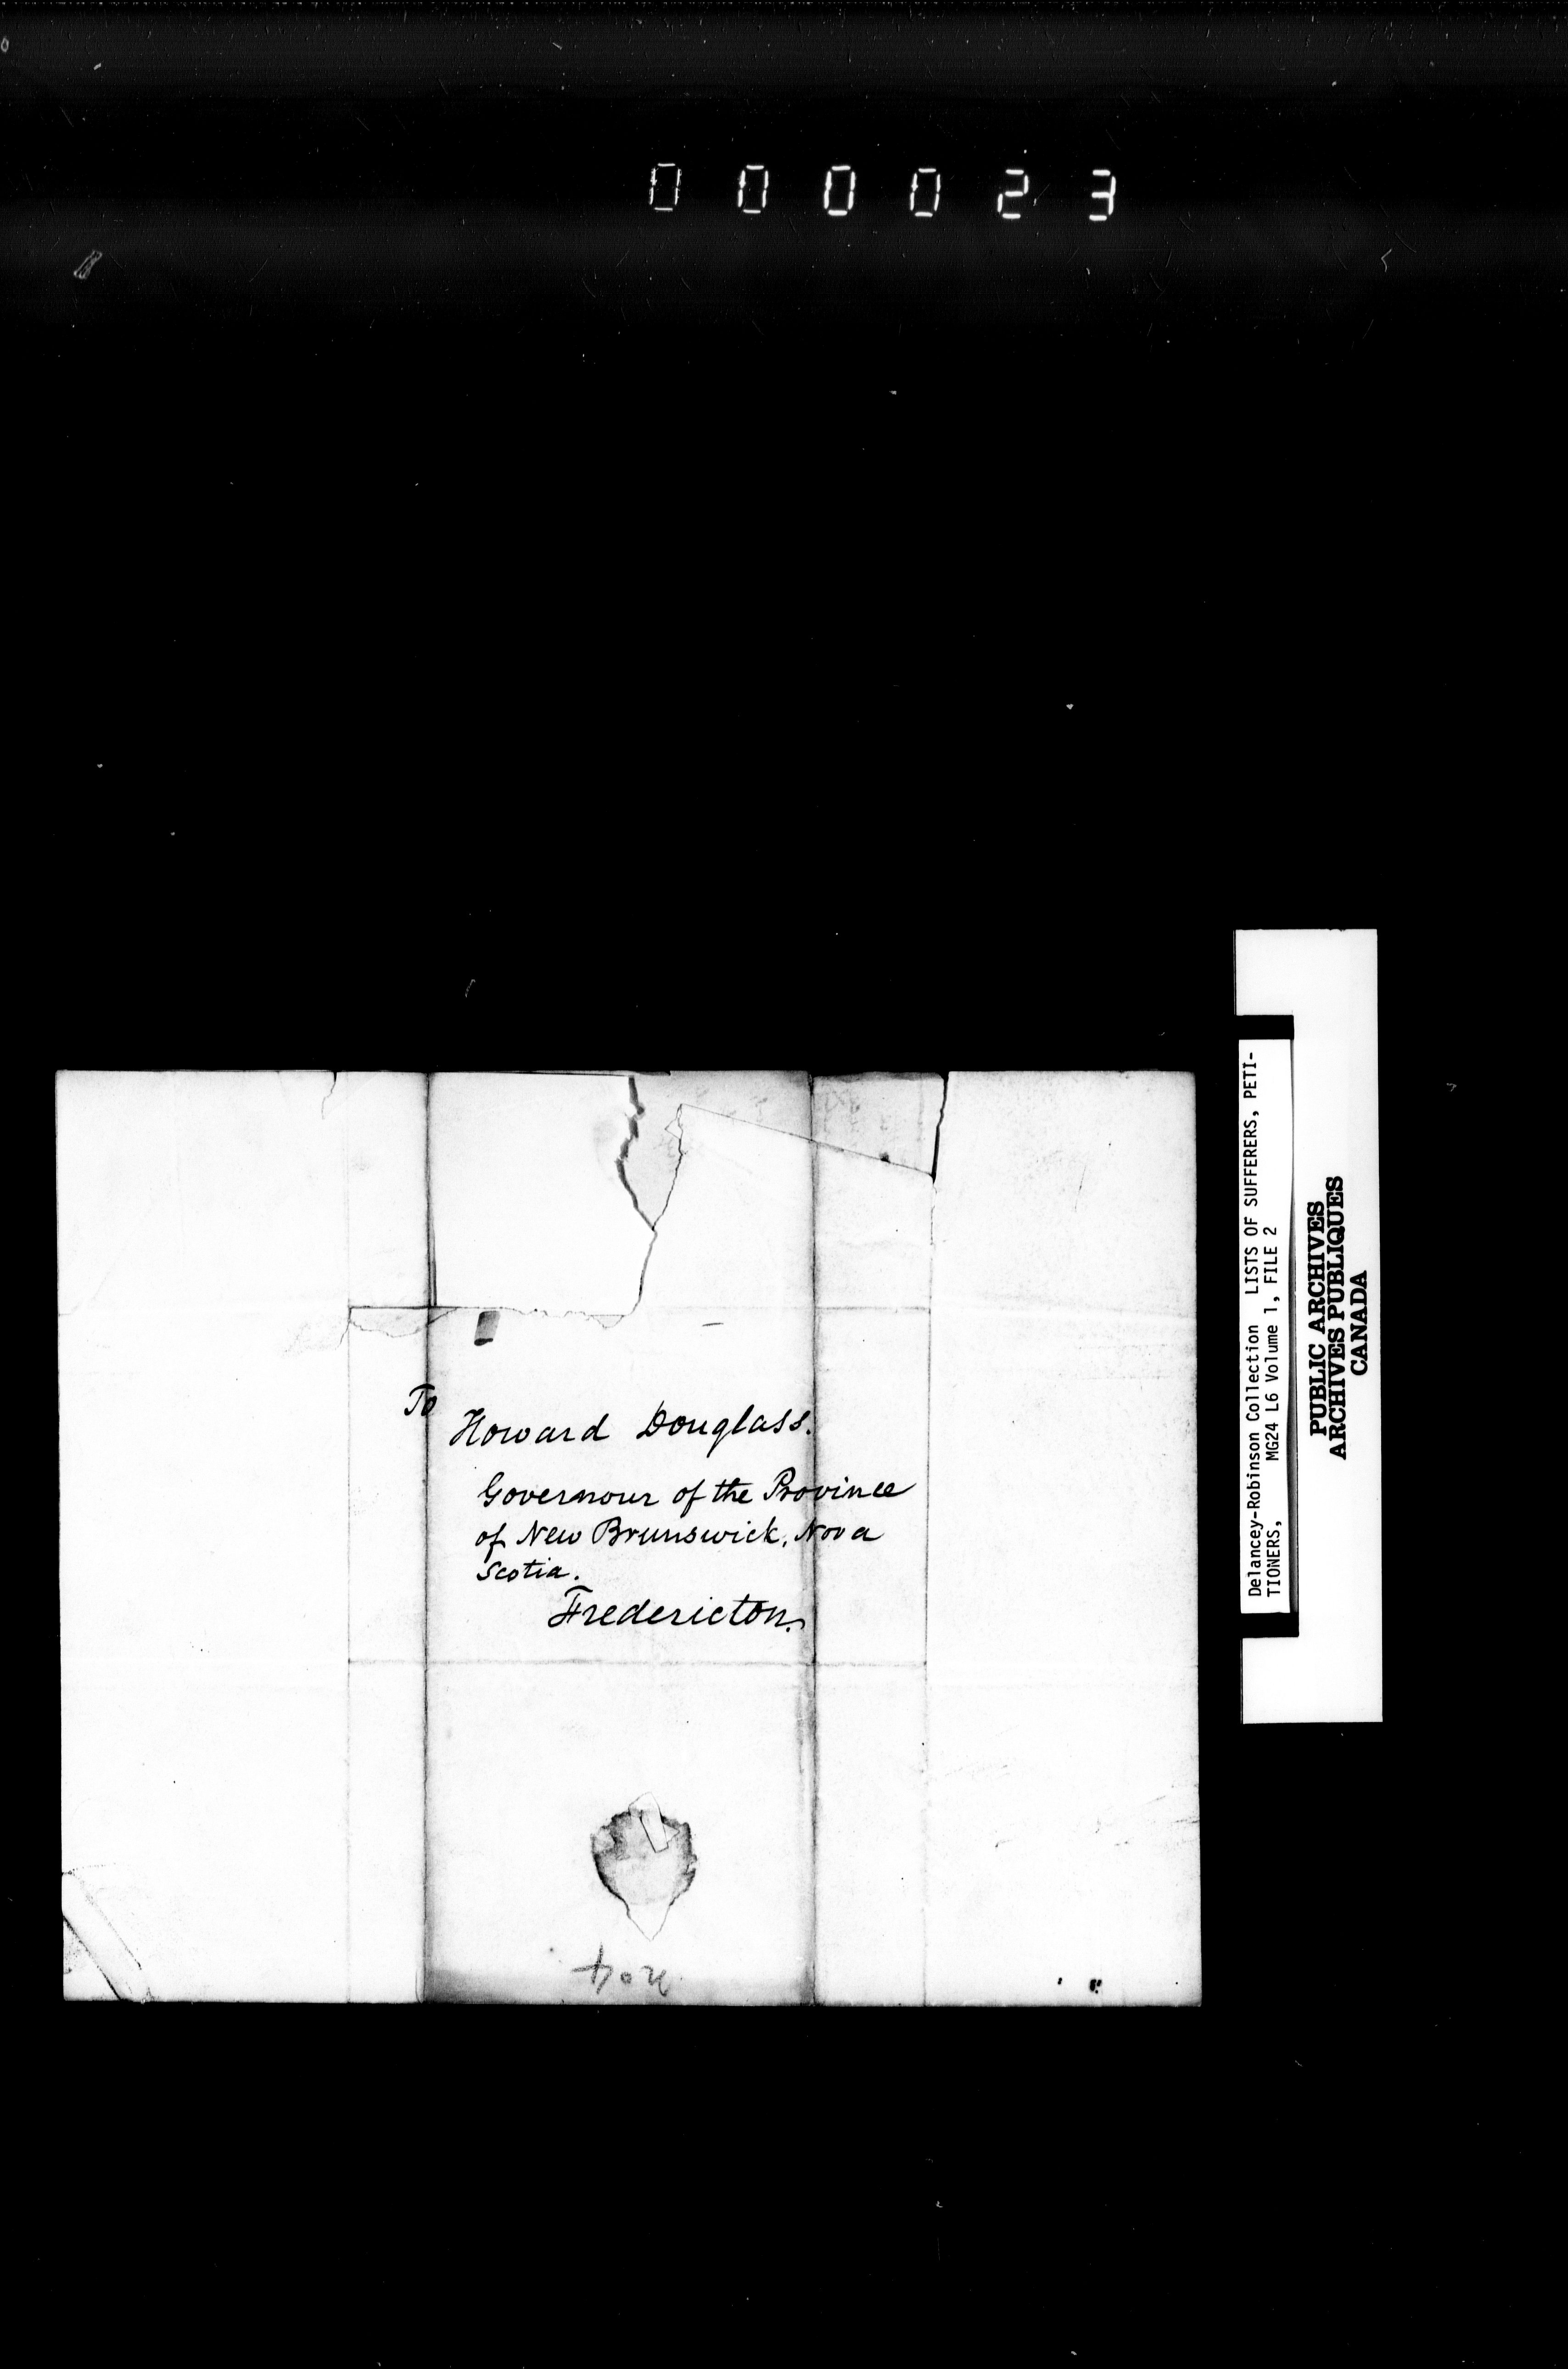 000023
To
Howard Douglass.
Governour of the Province
of New Brunswick, Nova
Scotia.
Fredericton.
No 4
Delancey-Robinson Collection LISTS OF SUFFERERS, PETI-
TIONERS, MG24 L6 Volume 1, FILE 2
PUBLIC ARCHIVES
ARCHIVES PUBLIQUES
CANADA